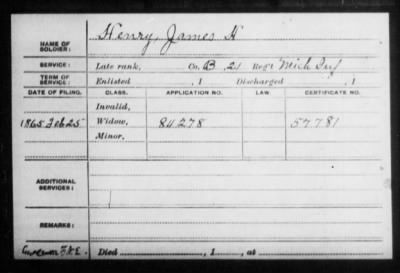 NAME OF SOLDIER: Henry, James H
SERVICE: Late rank, Co. B, 21 Reg't Mich Inf
TERM OF SERVICE: Enlisted , 1 Discharged , 1
DATE OF FILING. CLASS. APPLICATION NO. LAW. CERTIFICATE NO.
Invalid,
1865 Feb 25 Widow, 84.278 57.781
Minor,
ADDITIONAL SERVICES:
REMARKS:
Died , 1 , at